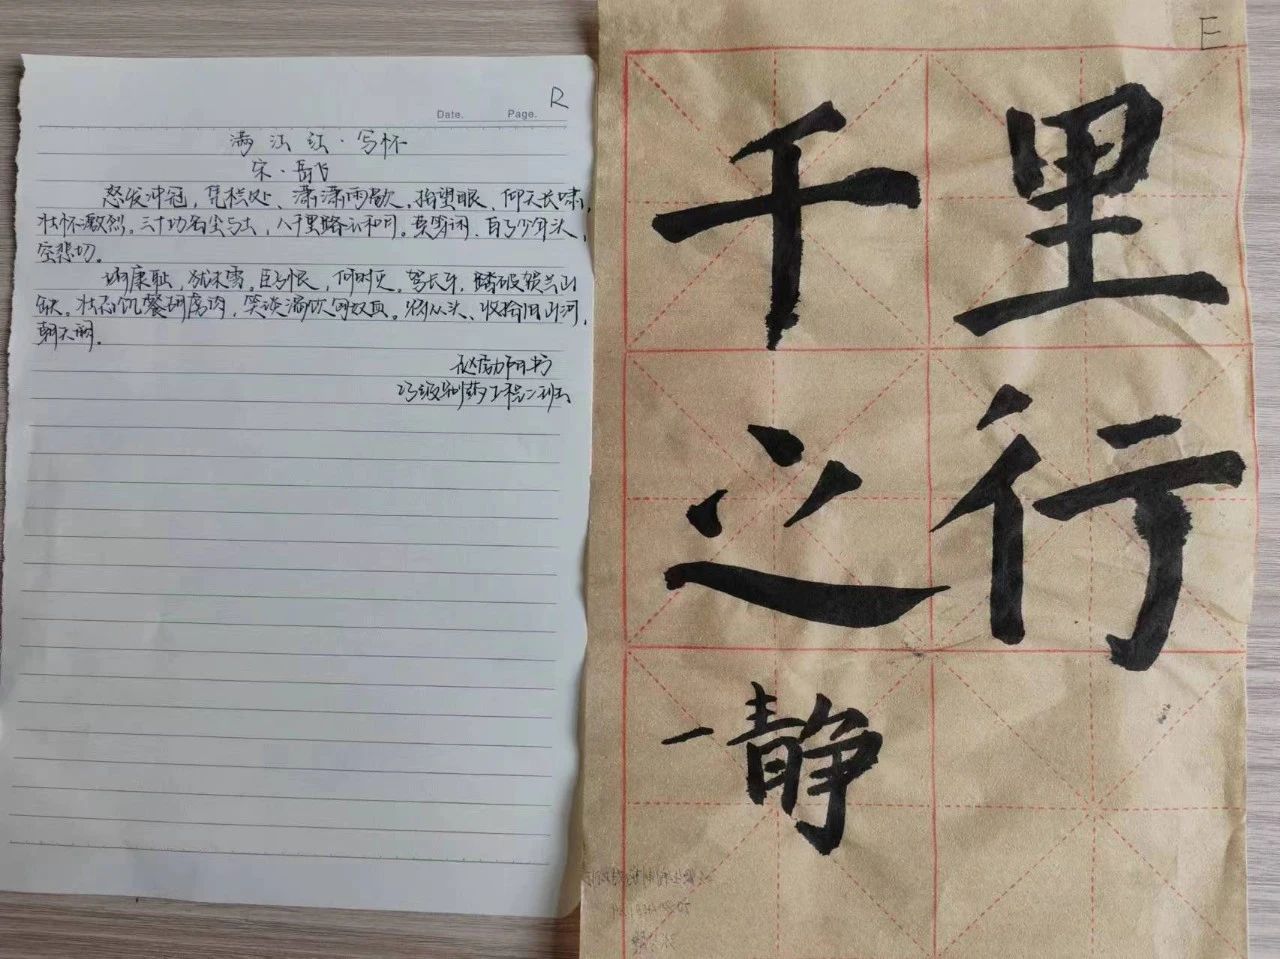 R
Date. Page.
满江红·写怀
宋·岳飞
怒发冲冠，凭栏处、潇潇雨歇，抬望眼，仰天长啸，
壮怀激烈。三十功名尘与土，八千里路云和月。莫等闲、白了少年头，
空悲切。
靖康耻，犹未雪，臣子恨，何时灭。驾长车，踏破贺兰山
缺。壮志饥餐胡虏肉，笑谈渴饮匈奴血。待从头、收拾旧山河，
朝天阙。
级制药工程二班
E
千里
之行
一静